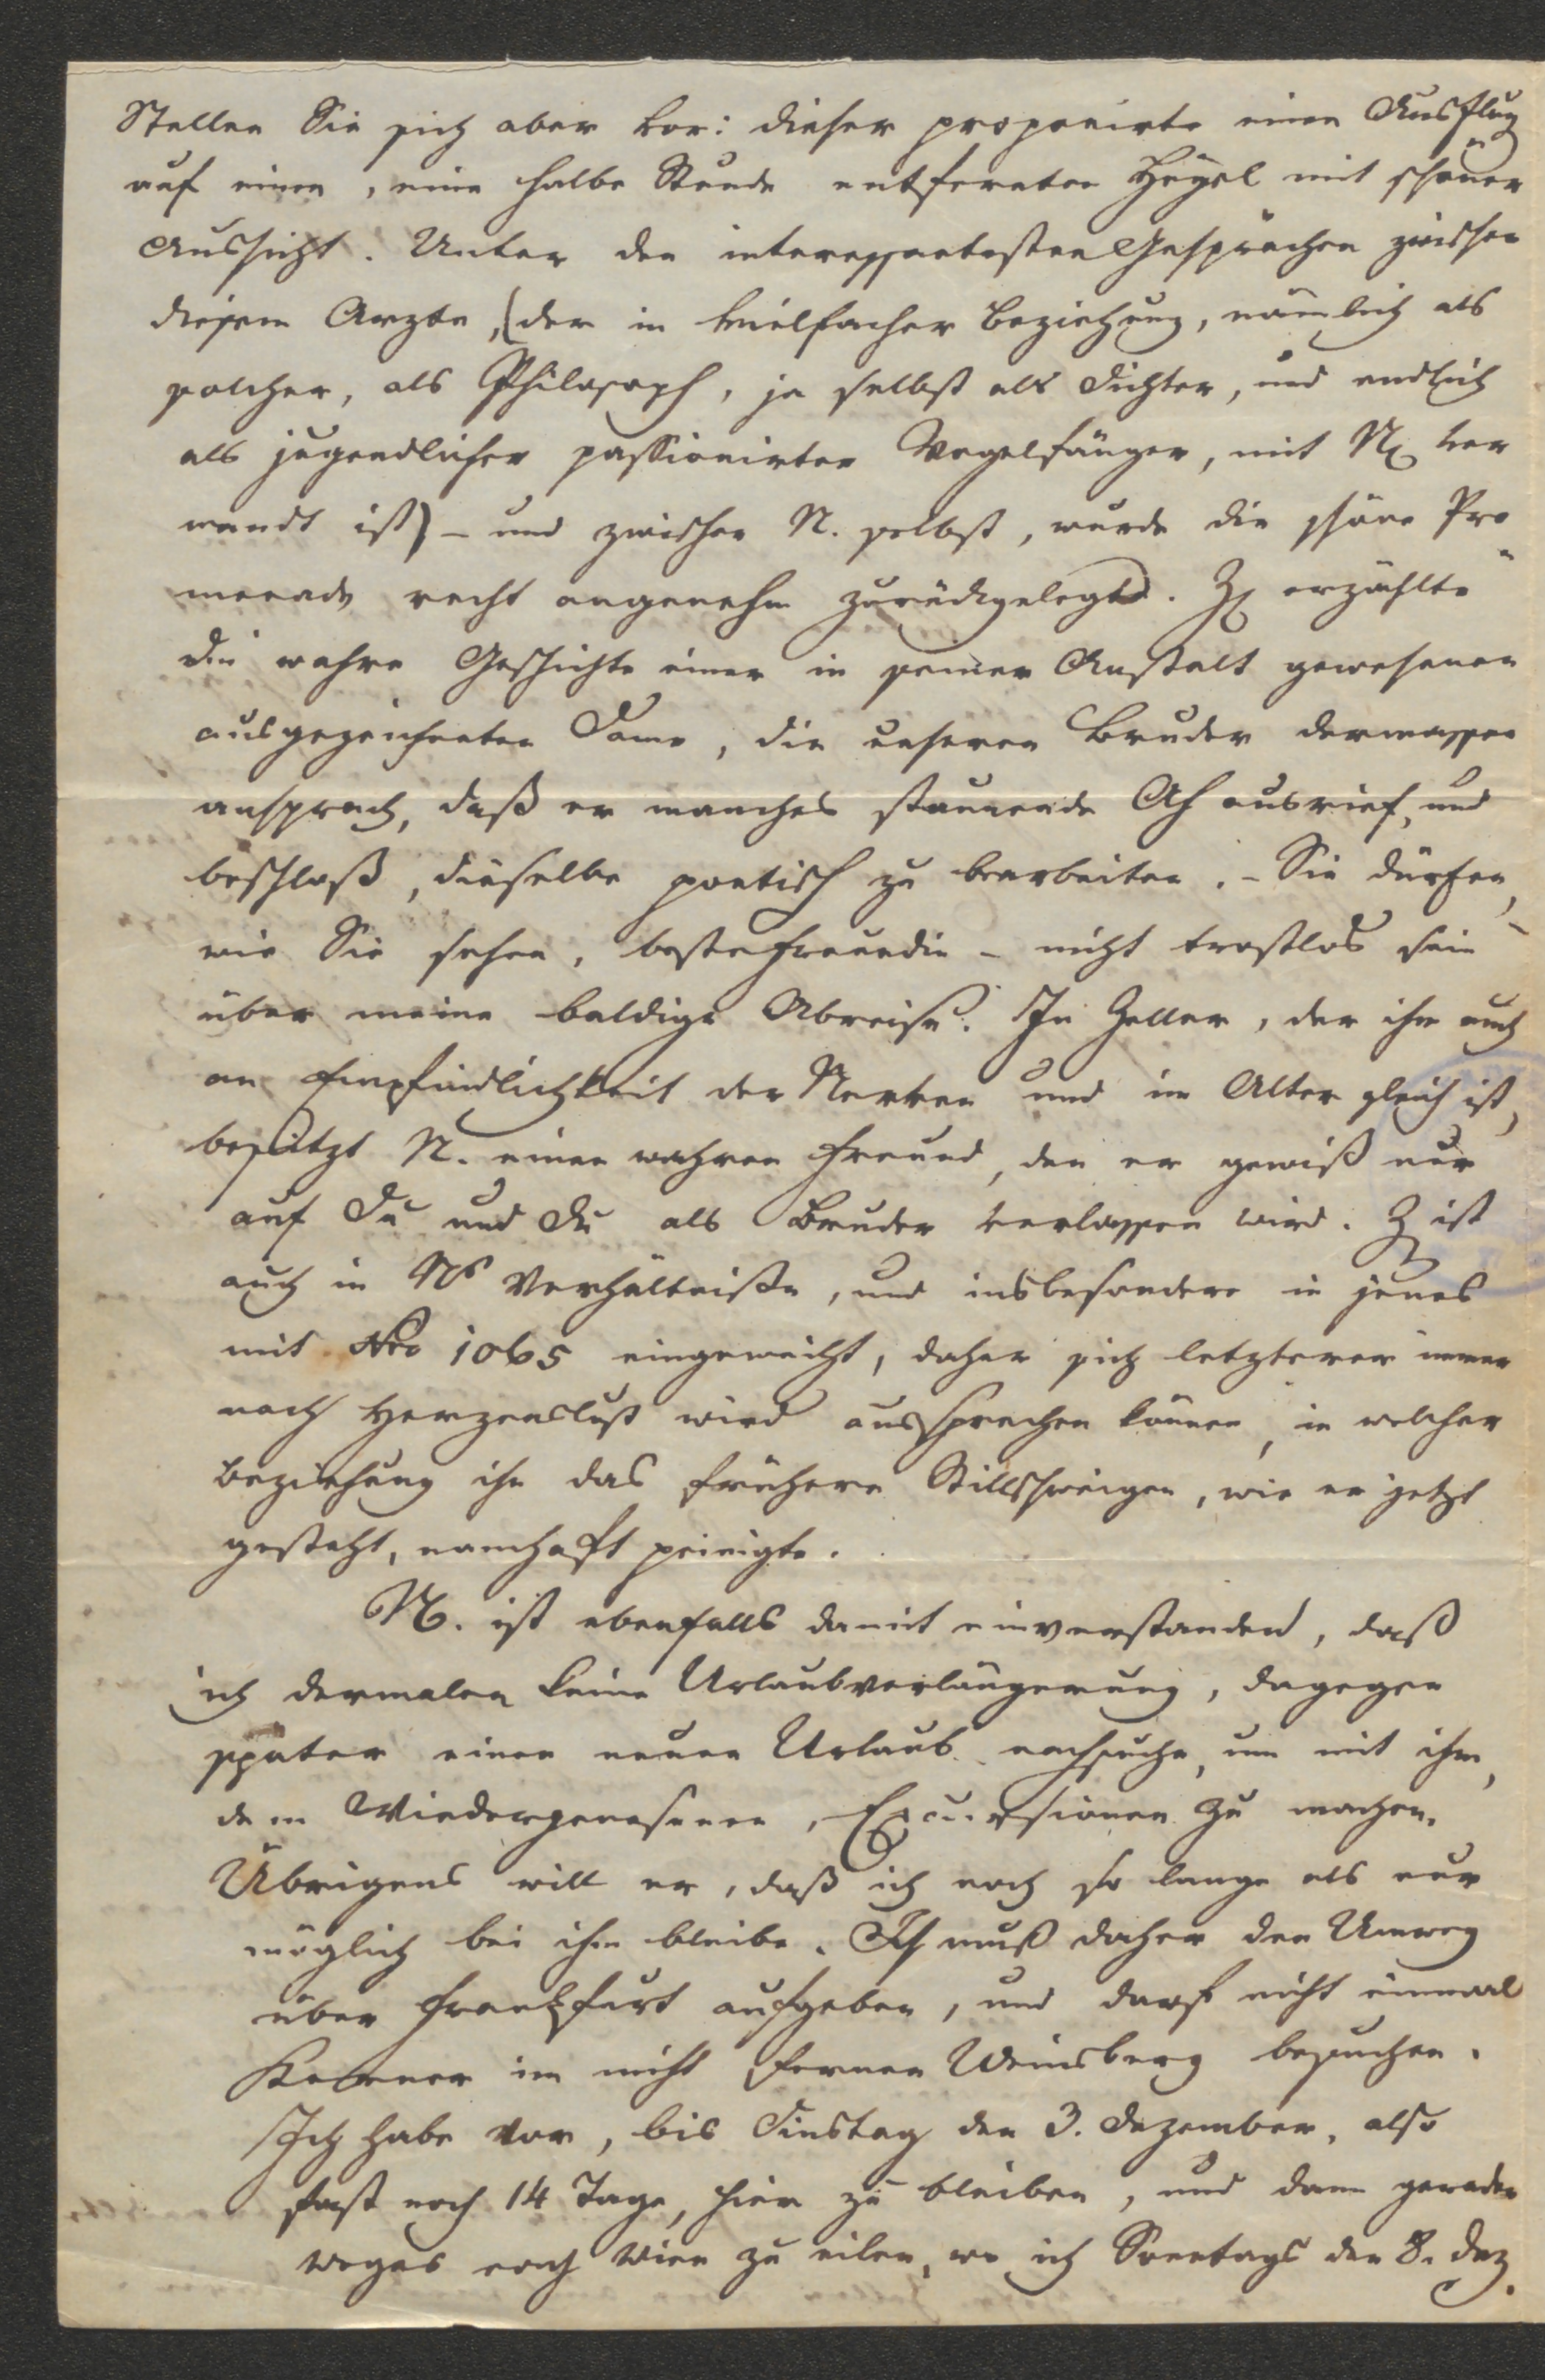 Stellen Sie sich aber vor: dieser proponirte einen Ausflug
auf einen, eine halbe Stunde entfernten Hügel mit schöner
Aussicht. Unter den interessantesten Gesprächen zwischen
diesem Arzte, (der in vielfacher Beziehung, nämlich als
solcher, als Philosoph, ja selbst als Dichter, und endlich
als jugendlicher passionirter Vogelfänger, mit N. ver
wandt ist) – und zwischen N. selbst, wurde die schöne Pro
menade recht angenehm zurückgelegt. Z. erzählte
die wahre Geschichte einer in seiner Anstalt gewesenen
ausgezeichneten Dame, die unseren Bruder dermassen
ansprach, daß er manches staunende Ah ausrief, und
beschloß, dieselbe poetisch zu bearbeiten. – Sie dürfen,
wie Sie sehen, beste Freundin – nicht trostlos sein
über meine baldige Abreise. In Zeller, der ihm auch
an Empfindlichkeit der Nerven und im Alter gleich ist,
besitzt N. einen wahren Freund, den er gewiß nur
auf Du und Du als Bruder verlassen wird. Z ist
auch in Ns Verhältniße, und insbesondere in jenes
mit Nro 1065 eingeweiht, daher sich letzterer immer
nach Herzenslust wird aussprechen können, in welcher
Beziehung ihn das frühere Stillschweigen, wie er jetzt
gesteht, namhaft peinigte.
N. ist ebenfalls damit einverstanden, daß
ich dermalen keine Urlaubverlängerung, dagegen
später einen neuen Urlaub nachsuche, um mit ihm,
dem Wiedergenesenen, Excursionen zu machen.
Übrigens will er, daß ich noch so lange als nur
möglich bei ihm bleibe. Ich muß daher den Umweg
über Frankfurt aufgeben, und darf nicht einmal
Kerner im nicht fernen Weinsberg besuchen.
Ich habe vor, bis Dinstag den 3. Dezember, also
fast noch 14 Tage, hier zu bleiben, und dann geraden
weges nach Wien zu eilen, wo ich Sonntags den 8. Dez.